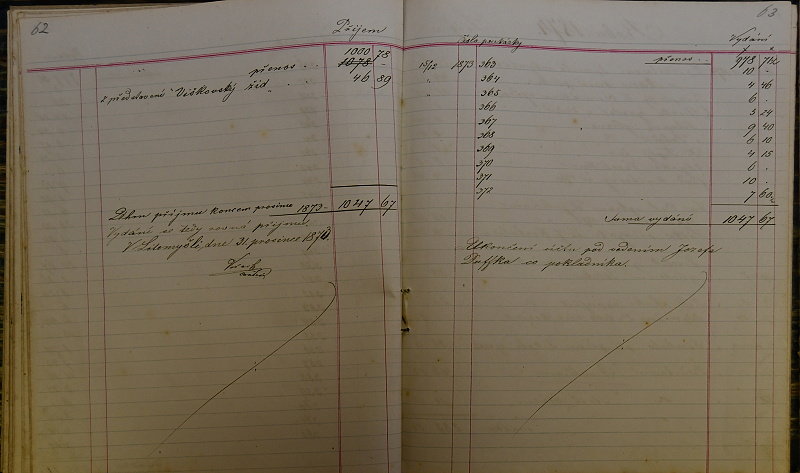 62
Příjem
přenos . . 1000 78
1078 -
z představení "Viškovský žid" . 46 89
Úhrn příjmu koncem prosince 1873 - 1047 67
Vydání se tedy rovná příjmu.
V Litomyšli, dne 31 prosince 1873.
63
Číslo poukázky
Vydání
přenos . . 978 76
15/12 1873 363 10 .
" 364 4 46
" 365 6 .
366 5 24
367 9 40
368 6 10
369 4 15
370 6 .
371 10 .
372 7 60
Suma vydání 1047 67
Ukončení účtu pod vedením Josefa
co pokladníka.